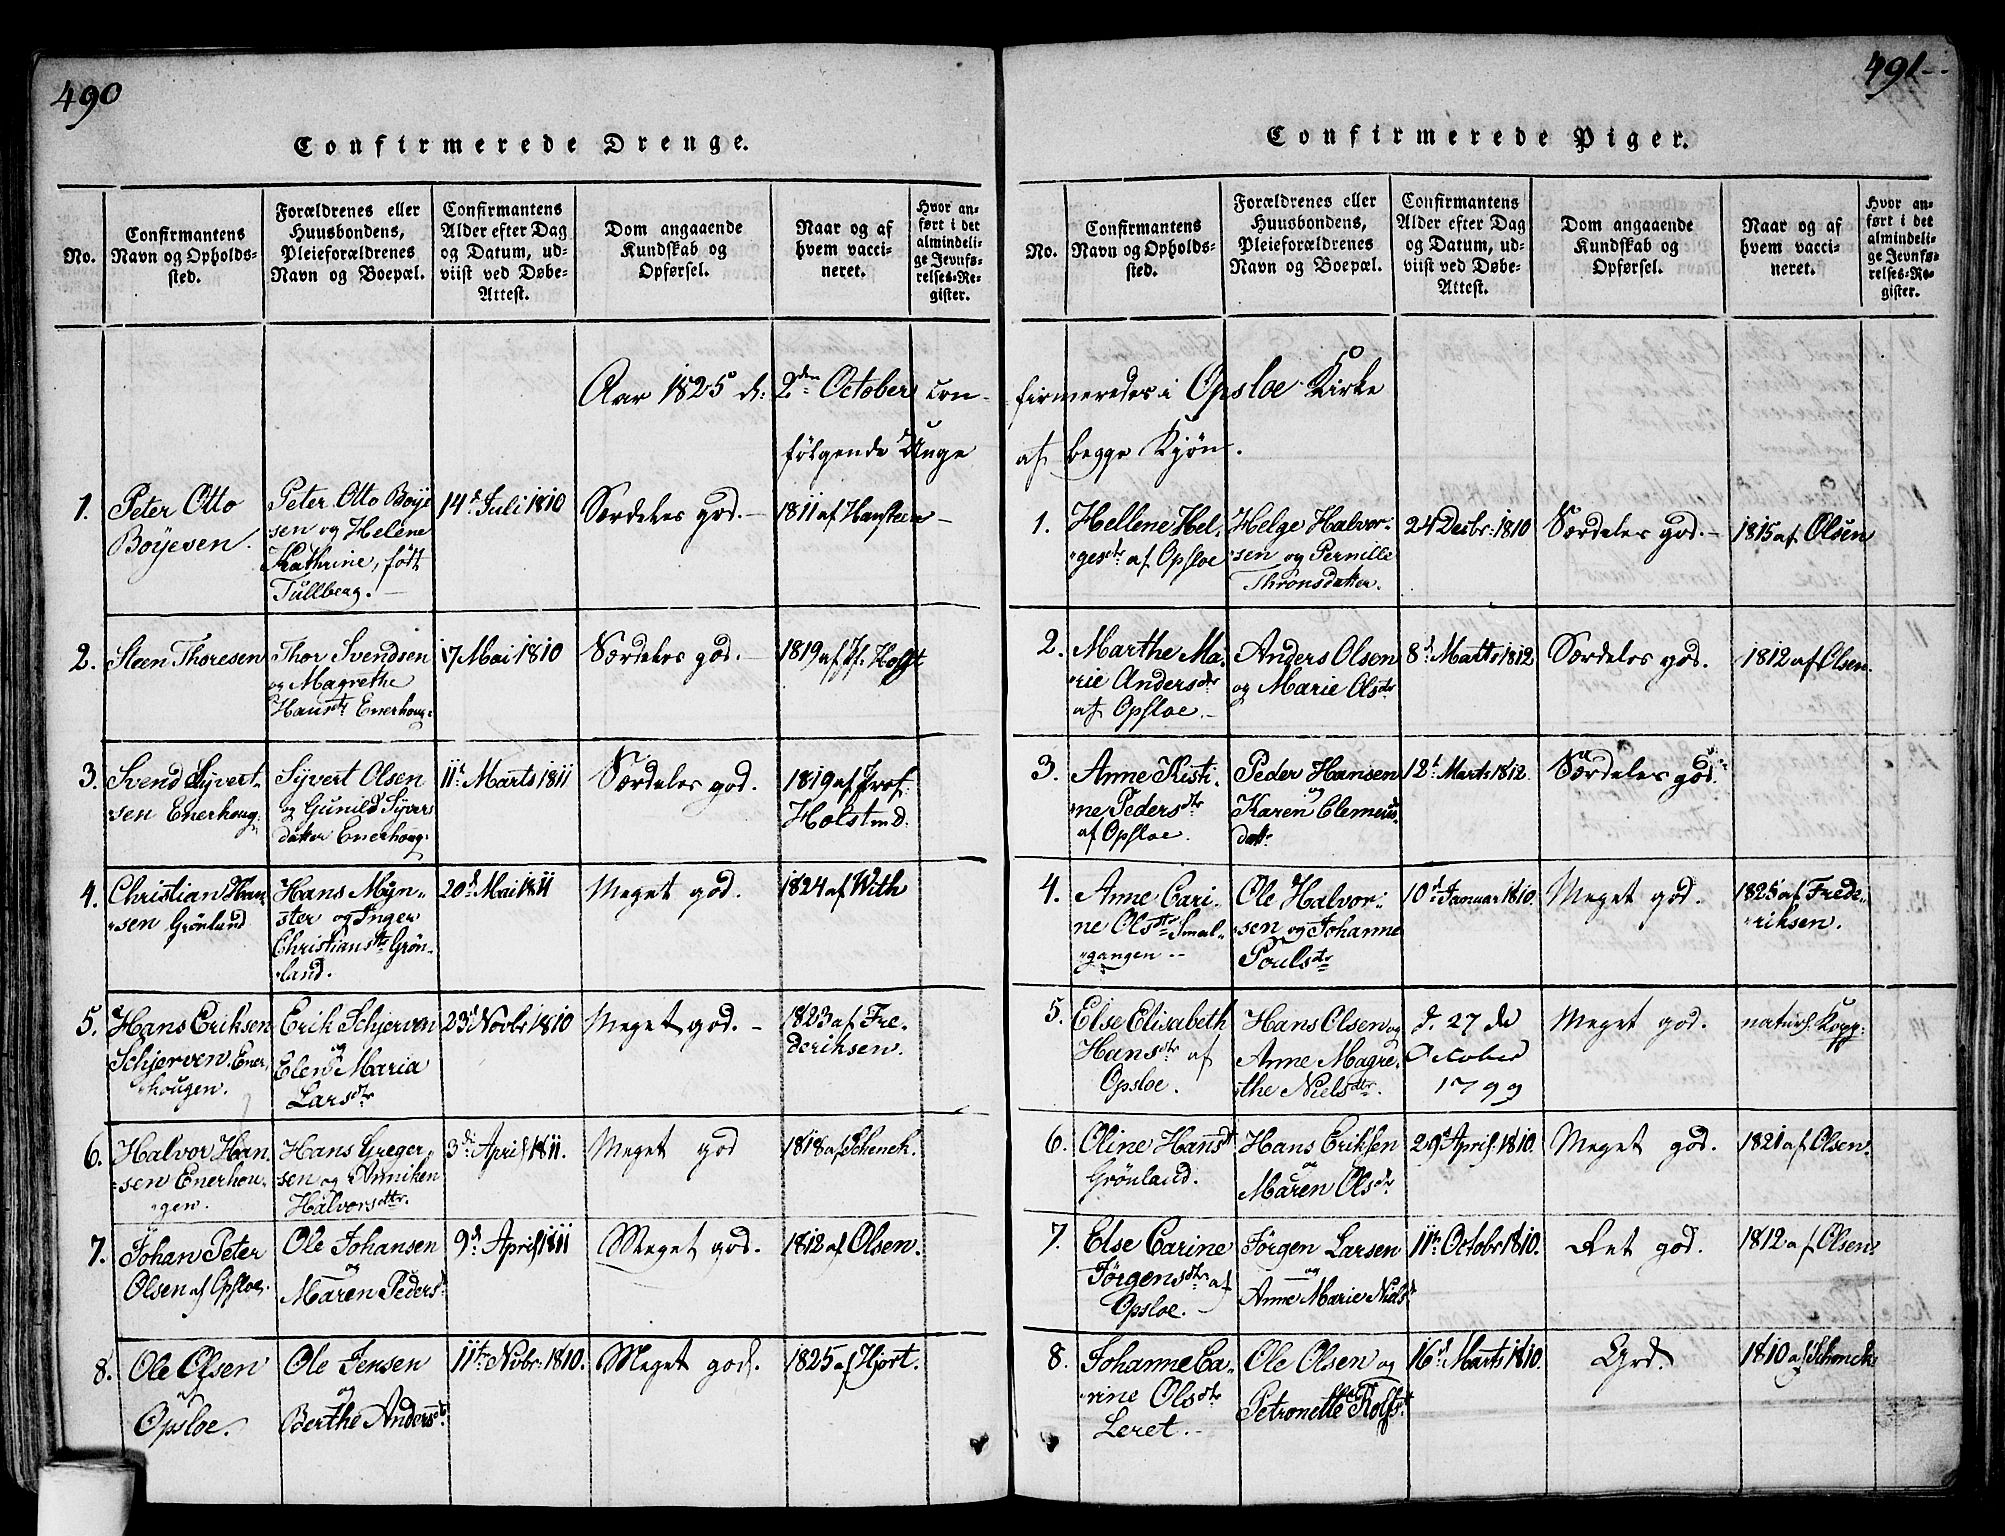 490
Confirmerede Drenge.
No.
Confirmantens
Navn og Opholds-
sted.
Forældrenes eller
Huusbondens,
Pleieforældrenes
Navn og Boepæl.
Confirmantens
Alder efter Dag
og Datum, ud-
viist ved Døbe-
Attest.
Dom angaaende
Kundskab og
Opførsel.
Naar og af
hvem vacci-
neret.
Hvor an-
ført i det
almindeli-
ge Jevnfø-
relses-Re-
gister.
Aar 1825 d: 2den October con-
følgende Unge
1.
Peter Otto
Boyesen.
Peter Otto Boye
sen og Helene
Kathrine, født
Tullberg.
14d Juli 1810
Særdeles god.
1811 af Hansteen
2.
Steen Thoresen
Thor Svendsen
og Magrethe
Hansdtr Enerhoug:
17 Mai 1810
Særdeles god.
1819 af Pf. Holst
3.
Svend Syvert-
sen Enerhoug:
Syvert Olsen
og Gunild Syvers
datter Enerhoug:
11t Marts 1811
Særdeles god.
1819 af Prof:
Holst
4.
Christian Han-
sen Grønland
Hans Myn-
ster og Inger
Christiansdtr Grøn-
land.
20d Mai 1811
Meget god.
1824 af With
5.
Hans Eriksen
Schjerven Ener-
hougen.
Erik Schjerven
og
Elen Maria
Larsdtr
23d Novbr 1810
Meget god.
1823 af Fre-
deriksen.
6.
Halvor Han-
sen Enerhou-
gen.
Hans Greger-
sen og Anniken
Halvorsdtr.
3di April 1811.
Meget god
1818 af Schenck.
7.
Johan Peter
Olsen af Opsloe.
Ole Johansen
og
Maren Pedersd
9d April 1811
Meget god.
1812 af Olsen.
8.
Ole Olsen
af
Opsloe.
Ole Jensen
og
Berthe Andersdt
11te Nvbr: 1810.
Meget god.
1825 af Hjort.
491
Confirmerede Piger.
No.
Confirmantens
Navn og Opholds-
sted.
Forældrenes eller
Huusbondens,
Pleieforældrenes
Navn og Boepæl.
Confirmantens
Alder efter Dag
og Datum, ud-
viist ved Døbe-
Attest.
Dom angaaende
Kundskab og
Opførsel.
Naar og af
hvem vacci-
neret.
Hvor an-
ført i det
almindeli-
ge Jevnfø-
relses-Re-
gister.
firmeredes i Opsloe Kirke
af begge Kjøn.
1.
Hellene Hel-
gesdtr af Opsloe
Helge Halvor-
sen og Pernille
Thronsdatter.
24 Decbr: 1810
Særdeles god.
1815 af Olsen
2.
Marthe Ma-
rie Andersdtr
af Opsloe.
Anders Olsen
og Marie Olsdtr
8d Marts 1812
Særdeles god.
1812 af Olsen.
3.
Anne Kisti-
ne Pedersdtr
af Opsloe.
Peder Hansen
og
Karen Clemens
datr
12t Marts 1812.
Særdeles god.
4.
Anne Cari-
ne Olsdtr Smal-
gangen
Ole Halvor-
sen og Johanne
Poulsdtr
10d Januar 1810.
Meget god.
1825 af Frede-
riksen.
5.
Else Elisabeth
Hansdtr af
Opsloe.
Hans Olsen og
Anne Magre-
the Nielsdtr.
d. 27 de
October
1799
Meget god.
naturl. Kopp:
6.
Oline Hansdt
Grønland.
Hans Eriksen
og
Maren Olsdtr
29d April 1810.
Meget god.
1821 af Olsen.
7.
Else Carine
Jørgensdtr af
Opsloe.
Jørgen Larsen
og
Anne Marie Nielsd
11te Octobr 1810.
Ret god.
1812 af Olsen
8.
Johanne Ca-
rine Olsdtr
Leret.
Ole Olsen og
Petronelle Rolfsdt
16d Marts 1810.
God.
1810 af Schenck